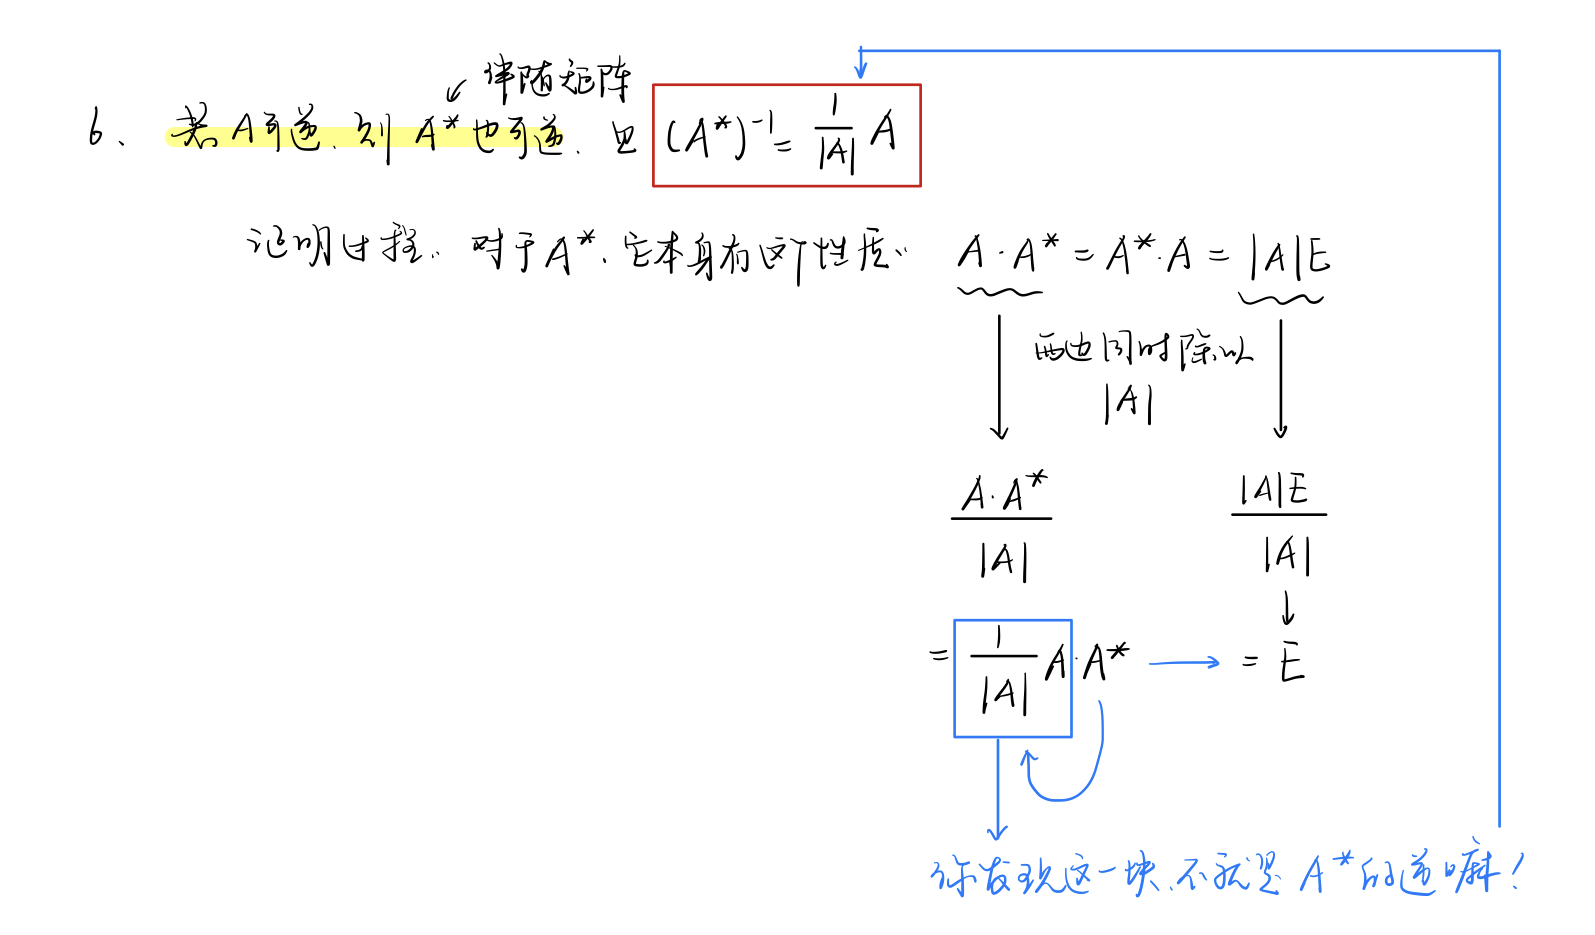 伴随矩阵
6、若A可逆,则A*也可逆,且 (A*)⁻¹ = 1/|A| A
证明过程:对于A*,它本身有这个性质: A·A* = A*·A = |A|E
两边同时除以
|A|
A·A*/|A| |A|E/|A|
= 1/|A| A·A* = E
你发现这一块,不就是A*的逆嘛!